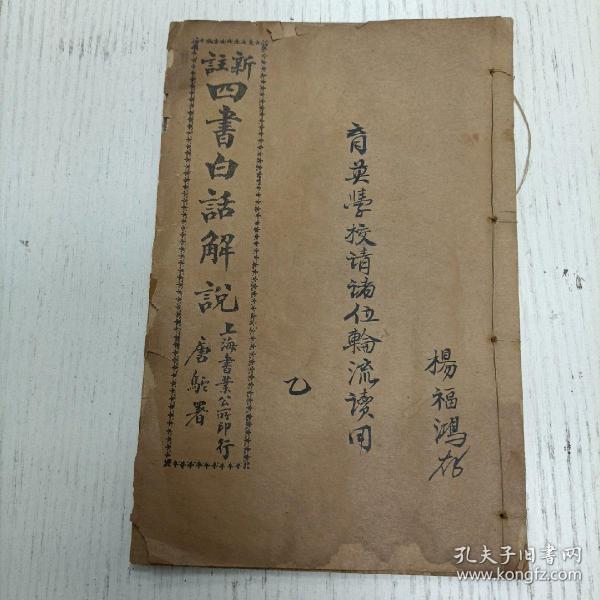 新註
四書白話解說
上海書業公所印行
唐駝署
育英學校请诸伍輪流读用
乙
楊福鴻存
孔夫子旧书网
www.kongfz.com